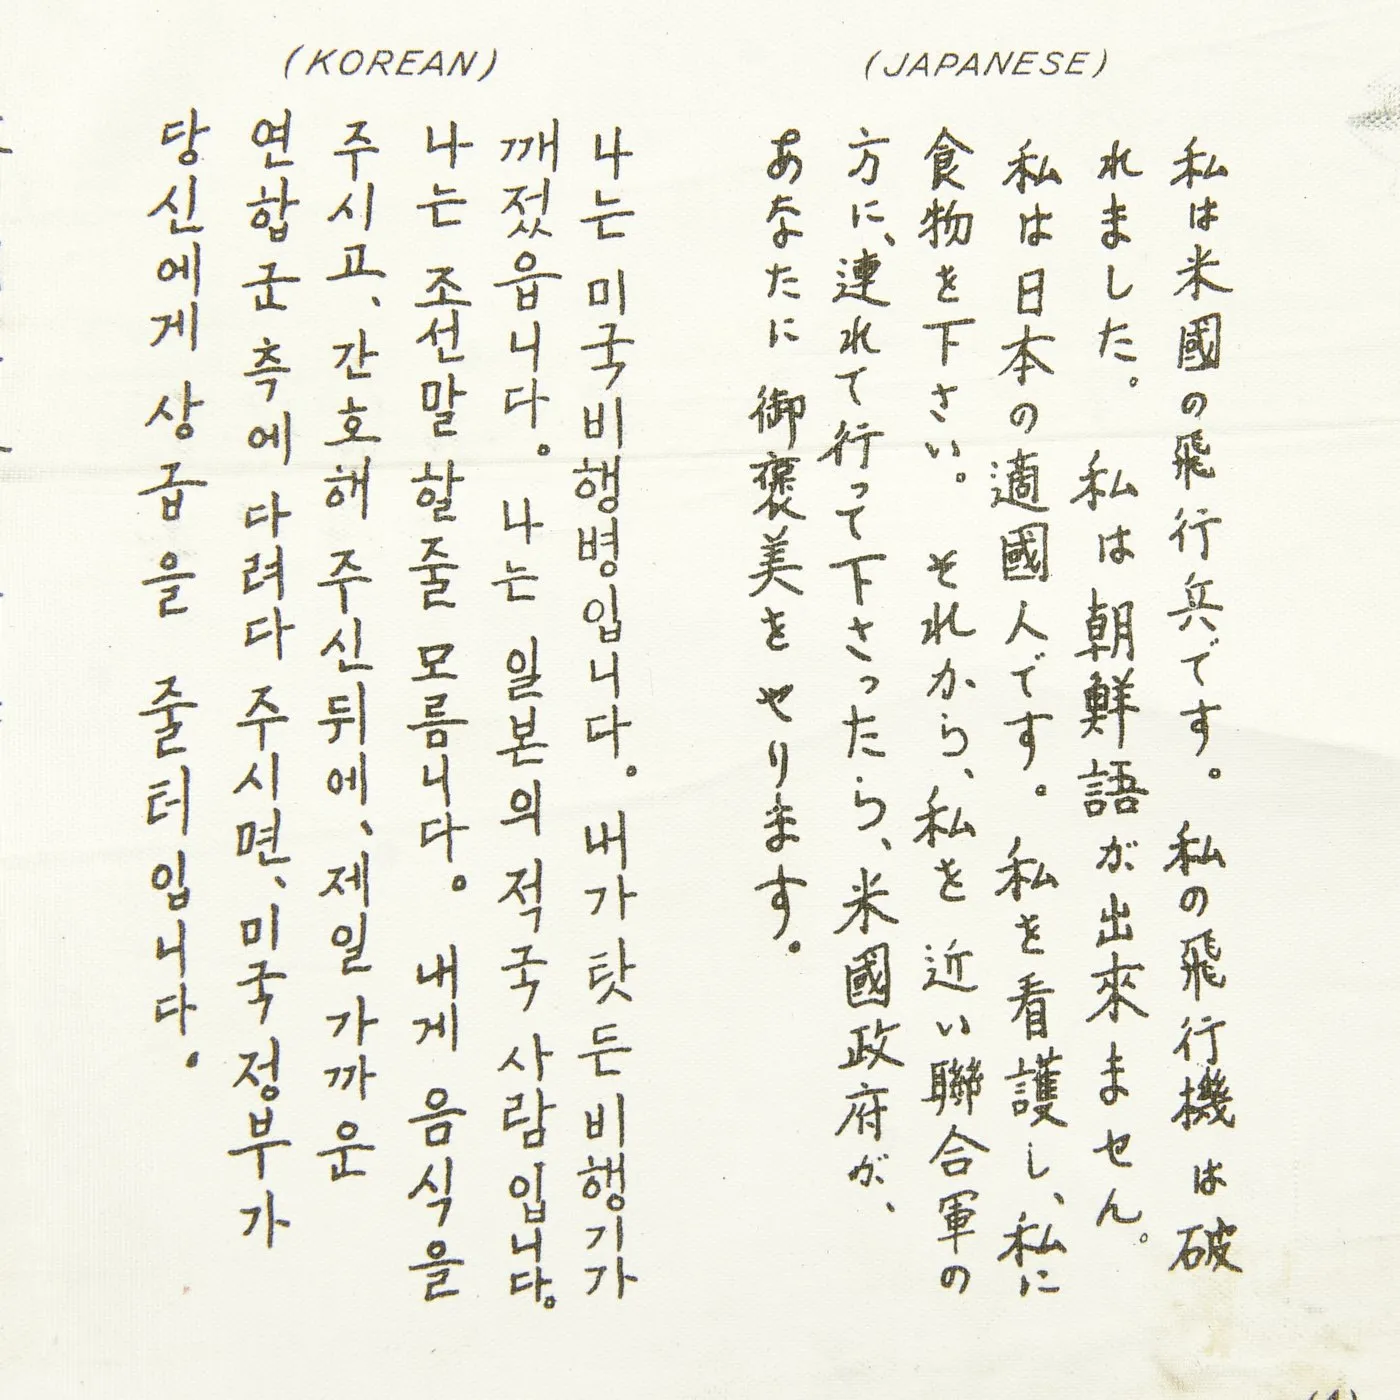 (JAPANESE)
私は米國の飛行兵です。私の飛行機は破
れました。私は朝鮮語が出來ません。
私は日本の適國人です。私を看護し、私に
食物を下さい。それから、私を近い聯合軍の
方に、連れて行って下さったら、米國政府が、
あなたに御褒美をやります。
(KOREAN)
나는 미국비행병입니다。 내가 탓든 비행기가
깨젔읍니다。 나는 일본의 적국 사람입니다。
나는 조선말 할줄 모름니다。 내게 음식을
주시고、간호해 주신뒤에、제일 가까운
연합군측에 다려다 주시면、미국정부가
당신에게 상급을 줄터입니다。